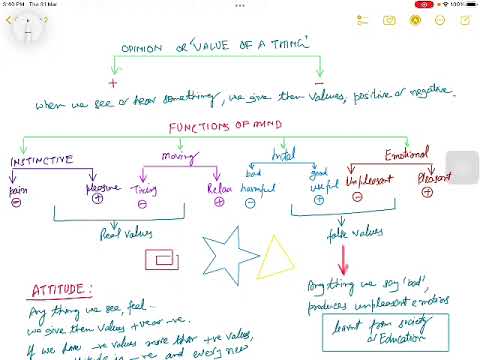 3:40 PM Thu 31 Mar
100%
OPINION OR 'VALUE OF A THING'
+ −
when we see or hear something, we give them values, positive or negative.
FUNCTIONS OF MIND
INSTINCTIVE Moving Emotional
pain pleasure Tiring Relax bad harmful good useful Unpleasant Pleasant
− + − + − + − +
Real values false values
ATTITUDE:
Any thing we see, feel -
we give them values +ve or -ve.
If we have -ve values more than +ve values,
is -ve and every new
Any thing we say 'bad',
produces unpleasant emotions
learnt from society
or Education